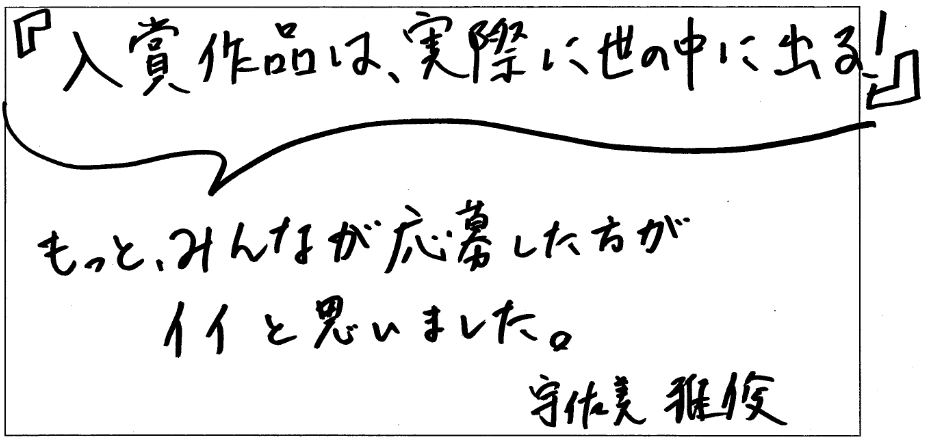 『入賞作品は、実際に世の中に出る!』
もっと、みんなが応募した方が
イイと思いました。
宇佐美 雅俊